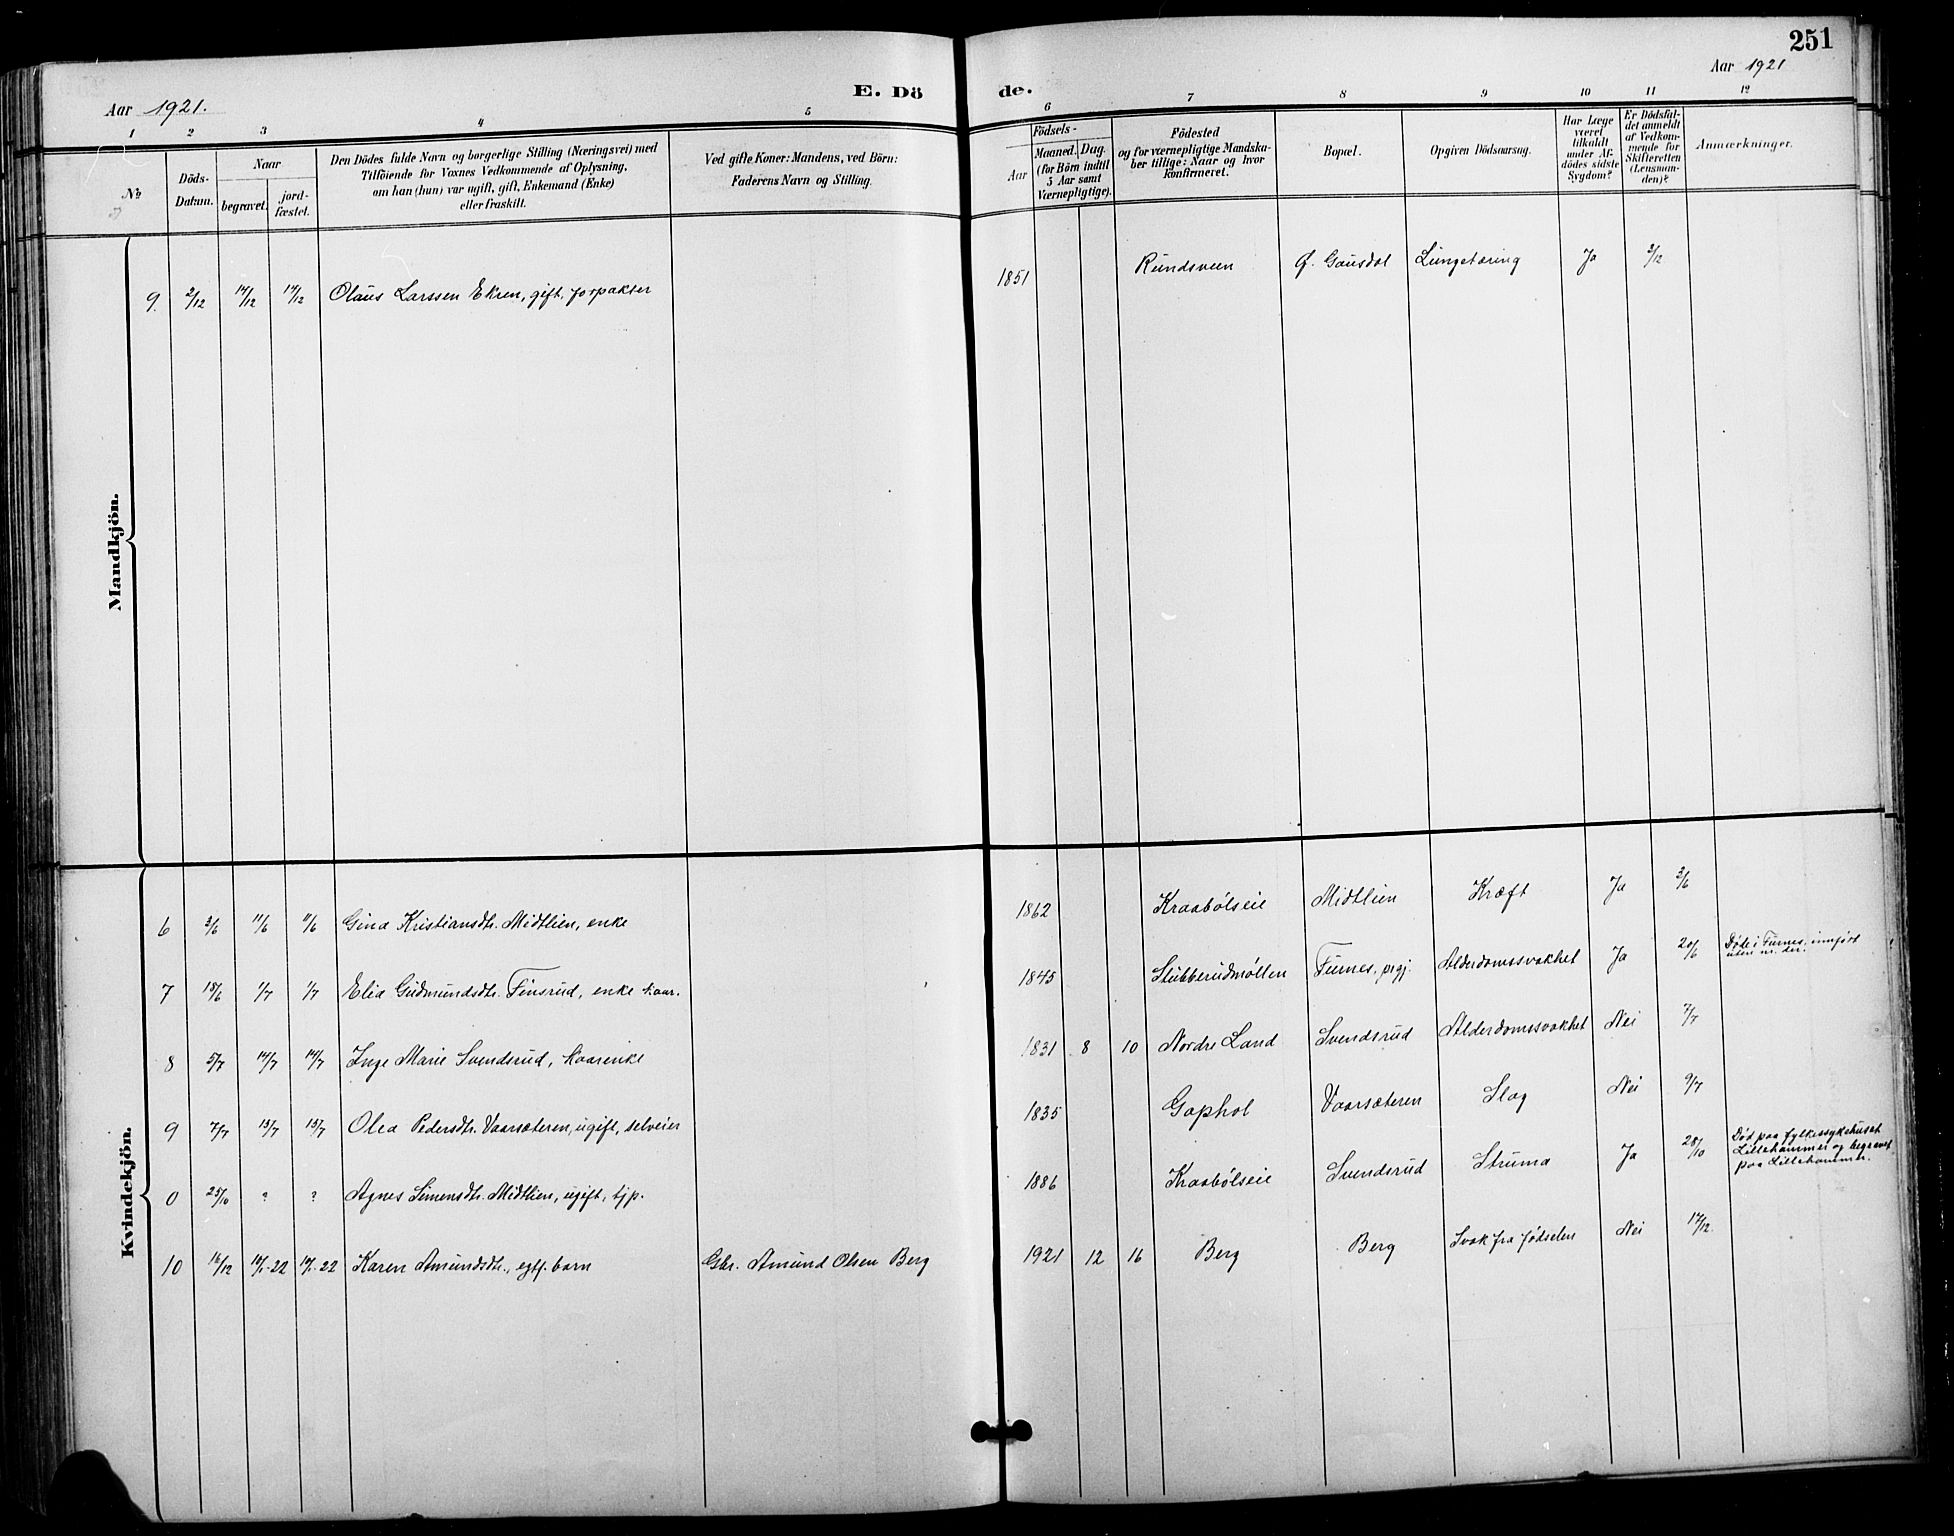 251
Aar 1921. E. Dö de. Aar 1921
1 2 3 4 5 6 7 8 9 10 11 12
No
Döds-
Datum.
Naar
begravet.
jord-
fæstet.
Den Dödes fulde Navn og borgerlige Stilling (Næringsvei) med
Tilföiende for Voxnes Vedkommende af Oplysning,
om han (hun) var ugift, gift, Enkemand (Enke)
eller fraskilt.
Ved gifte Koner: Mandens, ved Börn:
Faderens Navn og Stilling.
Födsels-
Aar
Maaned. Dag.
(for Börn indtil
5 Aar samt
Værnepligtige).
Födested
og for værnepligtige Mandska-
ber tillige: Naar og hvor
konfirmeret.
Bopæl.
Opgiven Dödsaarsag.
Har Læge
været
tilkaldt
under Af-
dödes sidste
Sygdom?
Er Dödsfal-
det anmeldt
af Vedkom-
mende for
Skifteretten
(Lensman-
den)?
Anmærkninger.
Mandkjön.
9. 2/12 14/12 14/12 Olaus Larssen Ekren, gift, forpakter 1851 Rundsveen Ø. Gausdal Lungetæring Ja 2/12
Kvindekjön.
6 3/6 11/6 11/6 Gina Kristiansdtr. Midtlien, enke 1862 Kraabölseie Midtlien Kræft Ja 3/6
7 18/6 1/7 1/7 Elia Gudmundsdtr. Finsrud, enke kaar. 1845 Stubberudmøllen Furnes, prgj. Alderdomssvakhet Ja 20/6 Døde i Furnes, innført
uten nr. der.
8 5/7 14/7 14/7 Inge Marie Svendsrud, kaarenke 1831 8 10 Nordre Land Svendsrud Alderdomssvakhet Nei 7/7
9 7/7 15/7 15/7 Olea Pedersdtr. Vaarsæteren, ugift, selveier 1835 Gaphol Vaarsæteren Slag Nei 9/7
0 25/10 ? ? Agnes Simensdtr. Midtlien, ugift, tjp. 1886 Kraabølseie Svendsrud Struma Ja 28/10 Død paa fylkessykehuset
Lillehammer og begravet
paa Lillehammer.
10 16/12 14/1-22 14/1-22 Karen Amundsdtr., egtf. barn Gbr. Amund Olsen Berg 1921 12 16 Berg Berg Svak fra fødselen Nei 17/12.